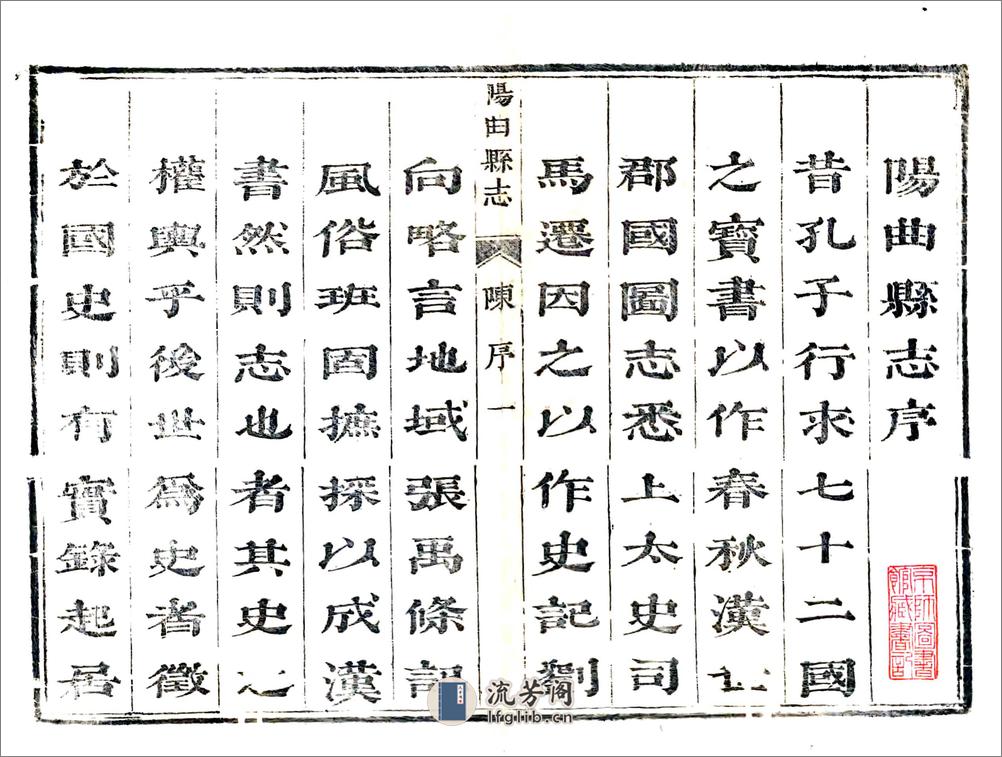 陽曲縣志序
昔孔子行求七十二國
之寶書以作春秋漢世
郡國圖志悉上太史司
馬遷因之以作史記劉
陽曲縣志 陳序 一
向略言地域張禹條記
風俗班固摭採以成漢
書然則志也者其史之
權輿乎後世爲史者徵
於國史則有實錄起居
京師圖書
館藏書記
流芳阁
lfglib.cn